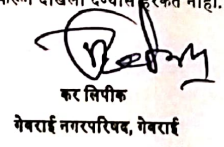 दाखला देण्यास हरकत नाही.
कर लिपीक
गेवराई नगरपरिषद, गेवराई